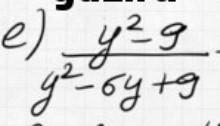 e) y²-9
y²-6y+9